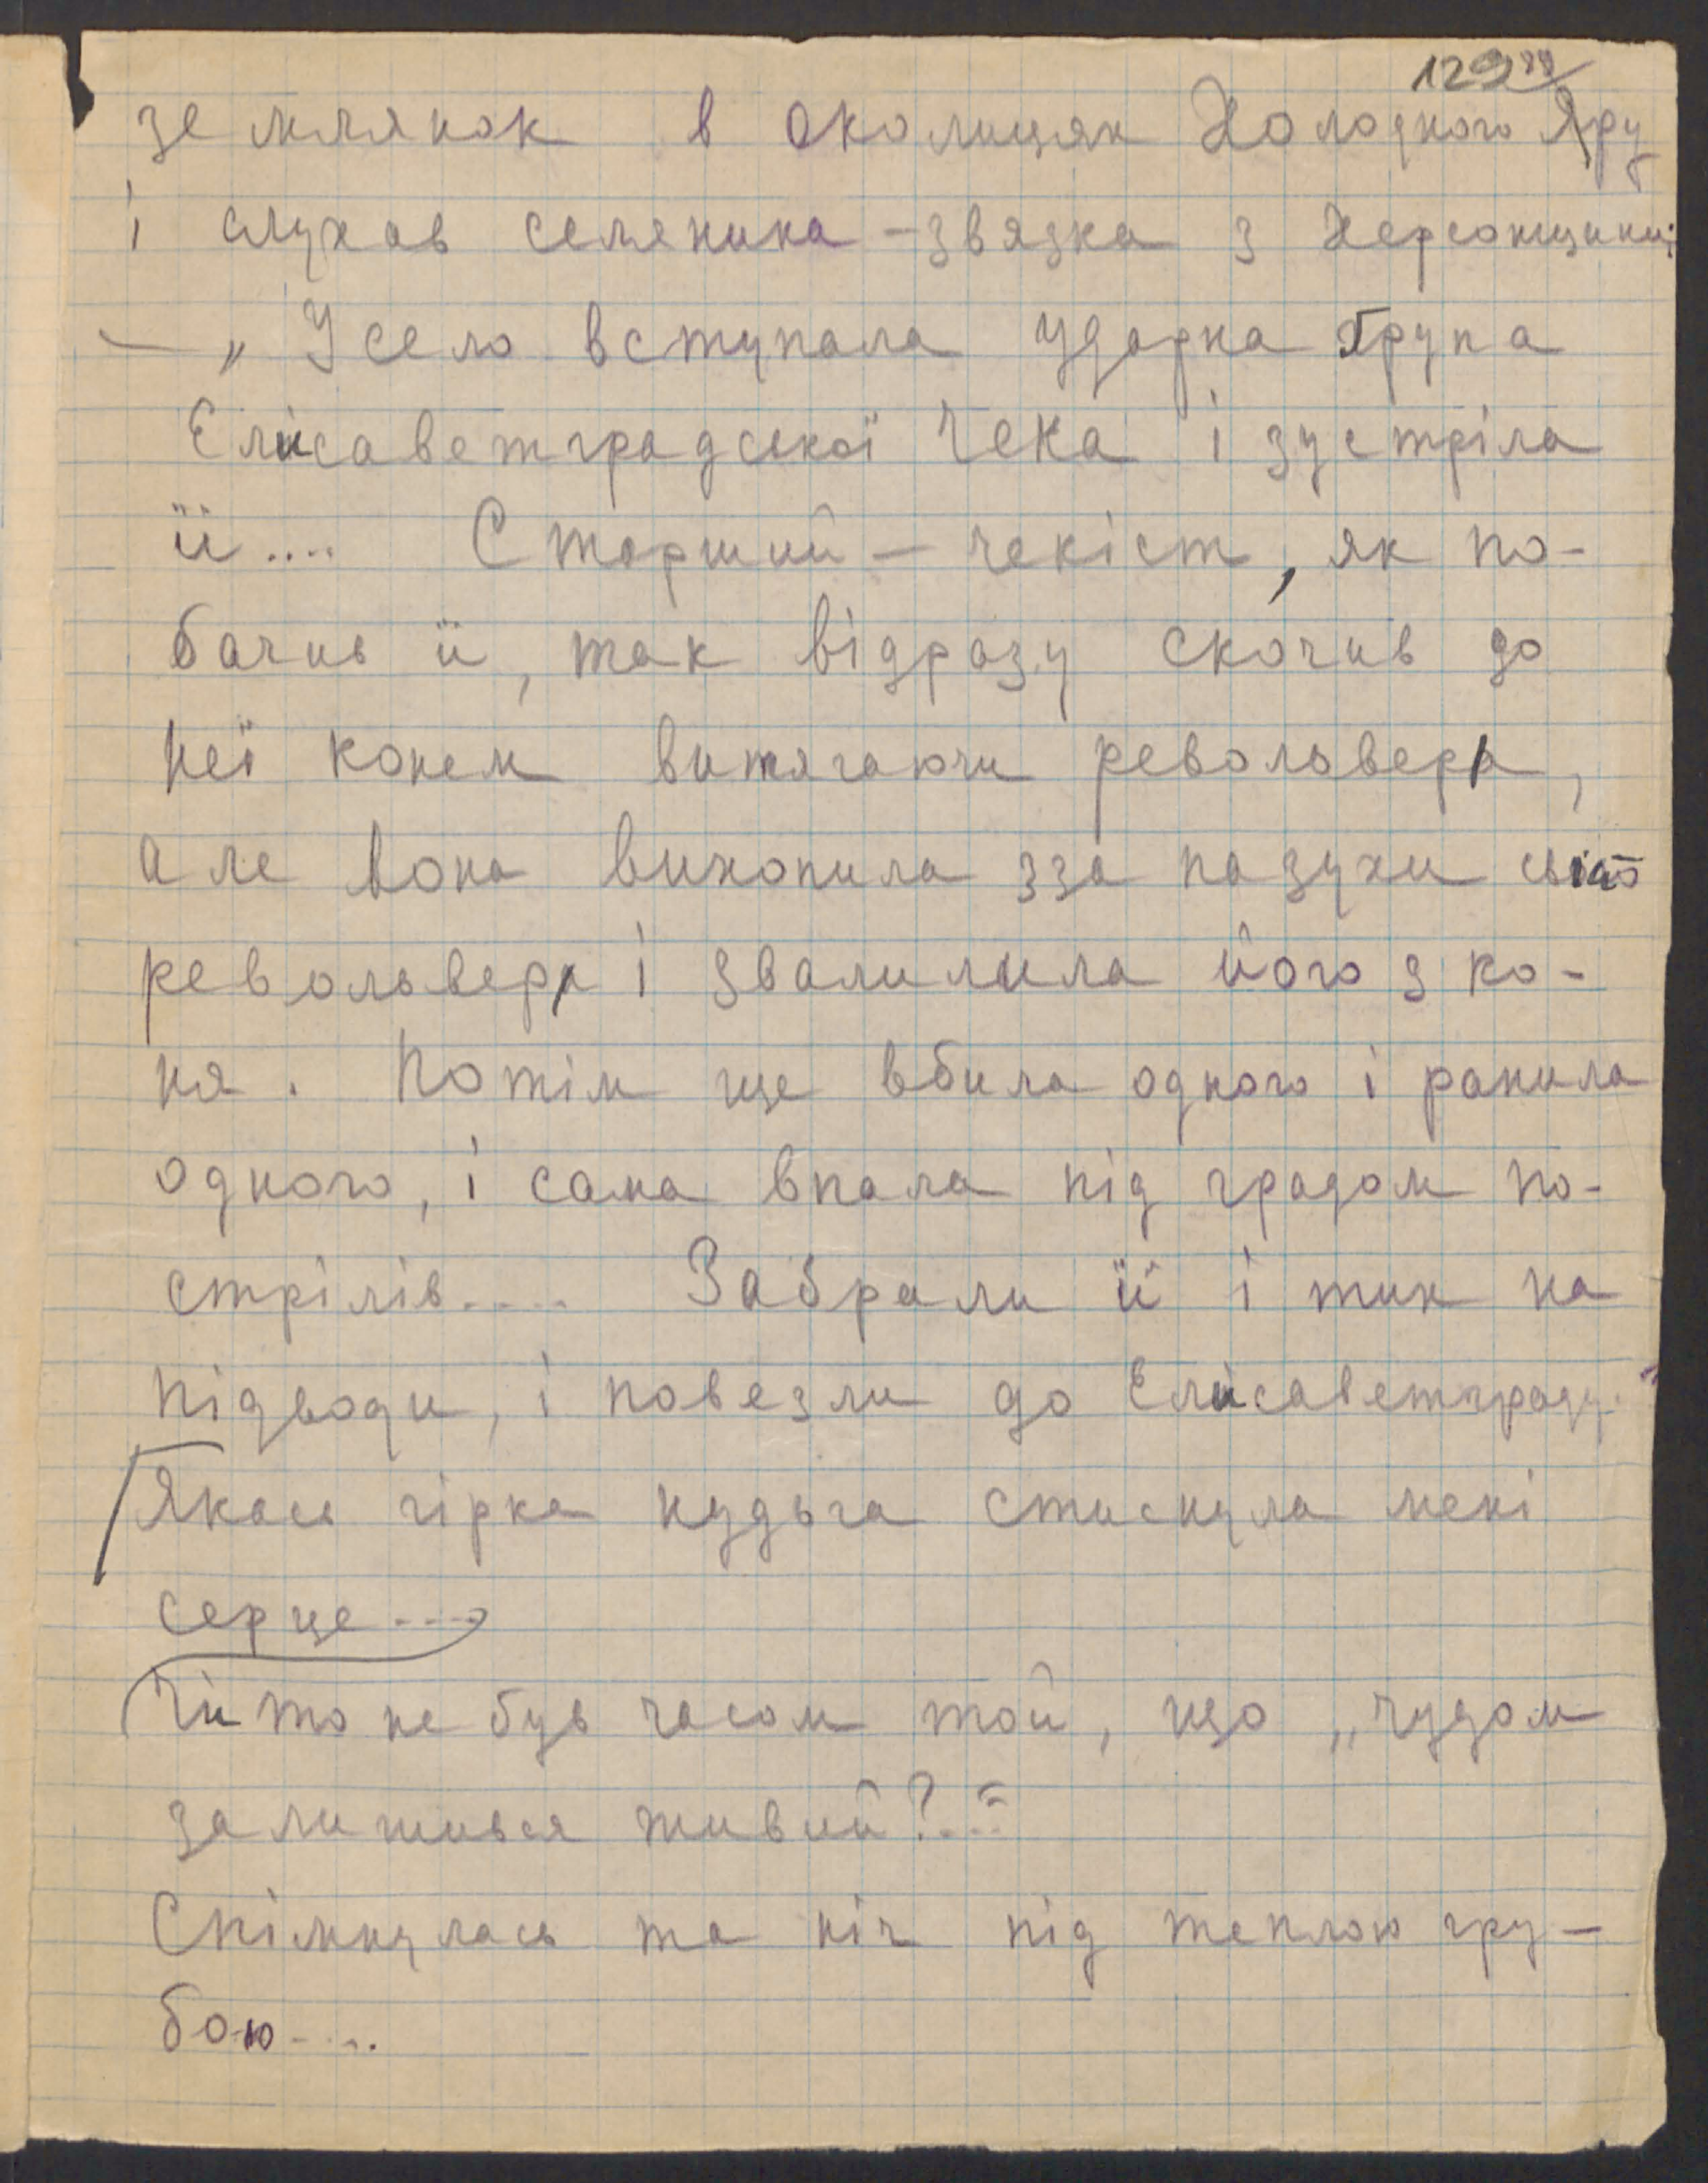 129
землянок в околицях Холодного Яру
і слухав селянина-звязка з Херсонщини:
— „У село вступала ударна група
Єлисаветградської Чека і зустріла
її.... Старший — чекіст, як по-
бачив її, так відразу скочив до
неї конем витягаючи револьвера,
але вона вихопила зза пазухи
револьвера і звалилила його з ко-
ня. Потім ще вбила одного і ранила
одного, і сама впала під градом по-
стрілів.... Забрали її і тих на
підводи, і повезли до Єлисаветграду."
Якась гірка нудьга стиснула мені
серце....
Чи то не був часом той, що „чудом
залишився живий?...“
Спімнулась та ніч під теплою гру-
бою....